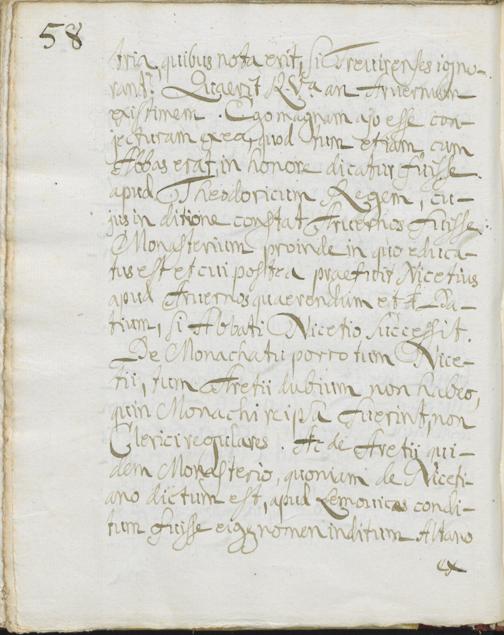 58
tria, quibus nota erit, si Trevirenses igno-
rant. Quaerit R. Va an Arvernum
existimem. Ego magnam ajo esse con-
jecturam ex ea, quod tum etiam cum
Abbas erat in honore dicatur fuisse
apud Theodoricum Regem, cu-
jus in ditione constat Arvernos fuisse.
Monasterium proinde in quo educa-
tus est et cui postea praefuit Nicetius
apud Arvernos quaerendum et
trium, si Abbati Nicetio successit.
De Monachatu porro tum Nice-
tii, tum Aretii dubium non habeo,
quin Monachi re ipsa fuerint, non
Clerici regulares. Ac de Aretii qui-
dem Monasterio, quoniam de Niceti-
ano dictum est, apud Lemovicas condi-
tum fuisse eiq; nomen inditum Altano
ex